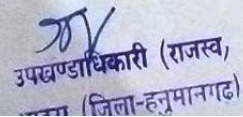 उपखण्डाधिकारी (राजस्व,
(जिला-हनुमानगढ़)